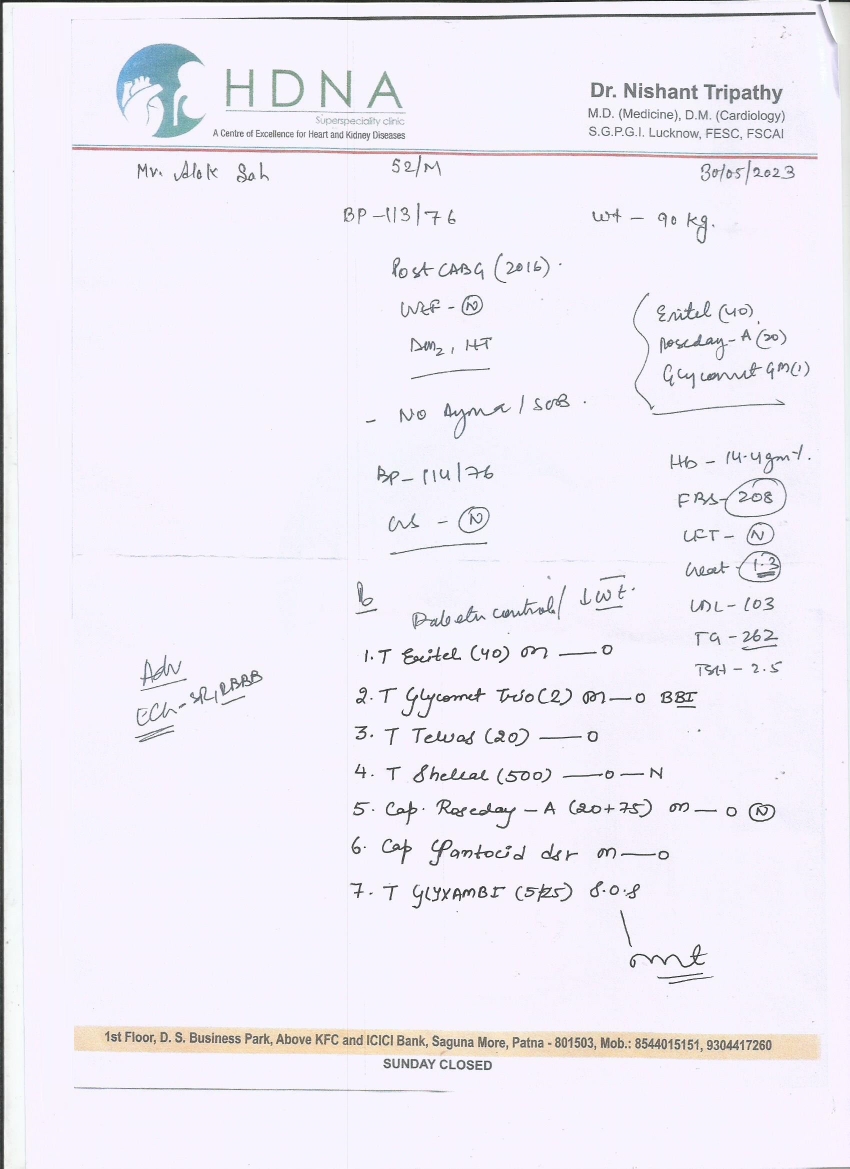 HDNA
Superspeciality clinic
A Centre of Excellence for Heart and Kidney Diseases
Dr. Nishant Tripathy
M.D. (Medicine), D.M. (Cardiology)
S.G.P.G.I. Lucknow, FESC, FSCAI
Mr. Alok Sah 52/M 30/05/2023
BP-113/76 Wt - 90 kg.
Post CABG (2016).
LVEF - N
DM2, HT
Eritel (40)
Roseday-A (20)
Glycomet GM(1)
- No Angina / SOB.
BP-114/76
CVS - N
Hb - 14.4gm%.
FBS- 208
LFT- N
Creat - 1.3
LDL-103
TG-262
TSH-2.5
Diabetic control / ↓wt.
Adv
ECG-SR, RBBB
1. T Eritel (40) m — o
2. T Glycomet Trio (2) m — o BBF
3. T Telvas (20) — o
4. T Shelcal (500) — o — N
5. Cap. Roseday - A (20+75) m — o N
6. Cap Pantocid dsr m — o
7. T GLYXAMBI (5/25) S.O.S
1st Floor, D. S. Business Park, Above KFC and ICICI Bank, Saguna More, Patna - 801503, Mob.: 8544015151, 9304417260
SUNDAY CLOSED